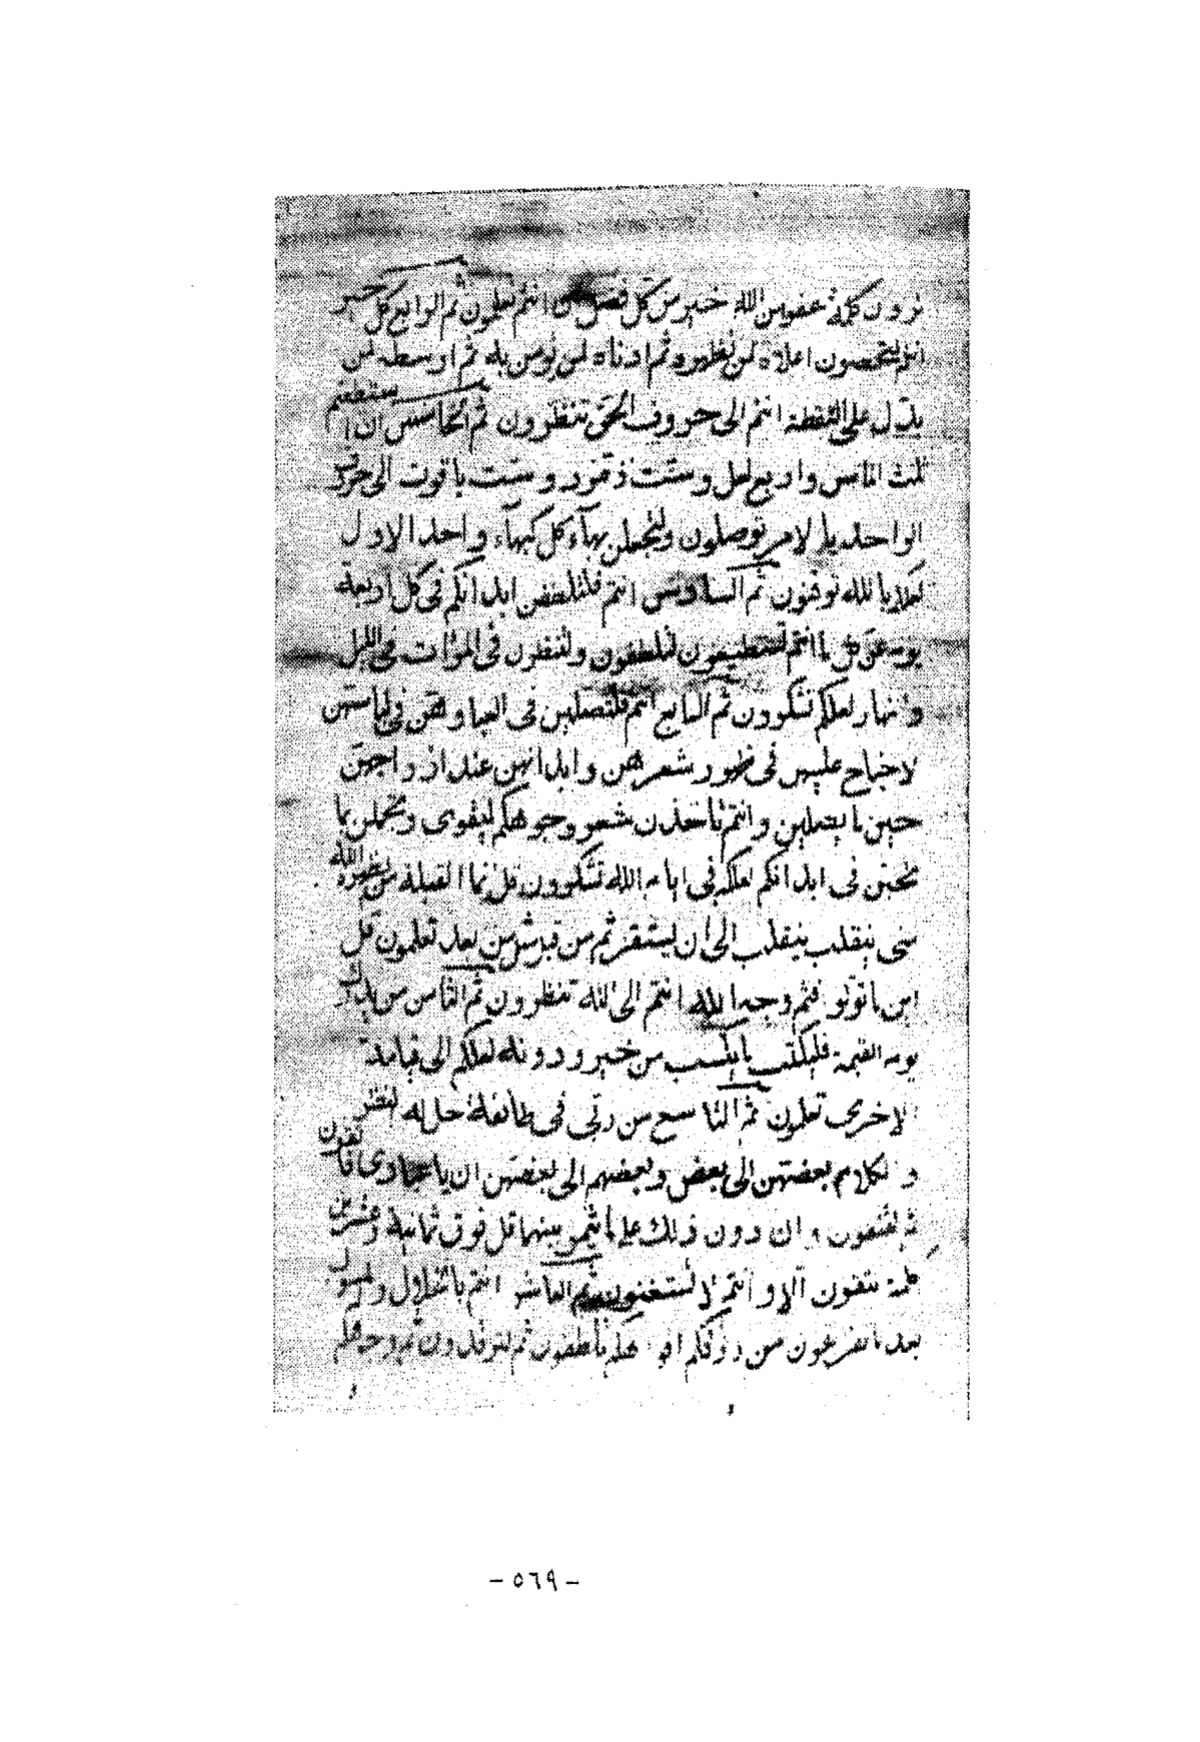 ترون كل في عفو من الله خير من كل فضل ان انتم تعلمون ثم الرابع كل خير
انتم لتخصصون اعلاه لمن نظهره ثم ادناه لمن يؤمن به ثم اوسطه لمن
يدل على النقطة انتم الى حروف الحي تنظرون ثم الخامس ان استطعتم
ثلث الماس واربع لعل وست زمرد وست ياقوت الى حروف
الواحد بالامر توصلون ولتجعلن بهآء كل كبهآء واحد الاول
لعلكم بالله توقنون ثم السادس انتم فلتلطفن ابدانكم في كل اربعة
يوم عن كل ما انتم تستطيعون لتلطفون ولتنظرن في المرآت في الليل
والنهار لعلكم تشكرون ثم السابع انتم فلتصلين في العبا ولهن في لباسهن
لا جناح عليهن في ظهور شعرهن وابدانهن عند ازواجهن
حين ما يصلين وانتم تأخذن شعر وجوهكم ليقوى وتجملن بما
تحبن في ابدانكم لعلكم في ايام الله تشكرون قل انما القبلة من نظهره الله
متى ينقلب ينقلب الى ان يستقر ثم من قبل مثل من بعد تعلمون قل
اين ما تولوا فثم وجه الله انتم الى الله تنظرون ثم الثامن من يدرك
يوم القيمة فليكتب ما يكسب من خير ودونه لعلكم الى قيامة
لاخرى تعلمون ثم التاسع من ربي في طائفة حل له النظر
والكلام بعضهن الى بعض وبعضهم الى بعضهن ان يا عبادي فاتقون
ثم لتتقون وان دون ذلك على ما انتم بينهما قل فوق ثمانية وعشرين
كلمة تتقون الا وانتم لا تستغنون ثم العاشر انتم بالخلال والمسواك
بعد ما تفرغون من رزقكم افواهكم تلطفون ثم لترقدون ثم وجوهكم
- ٥٦٩ -